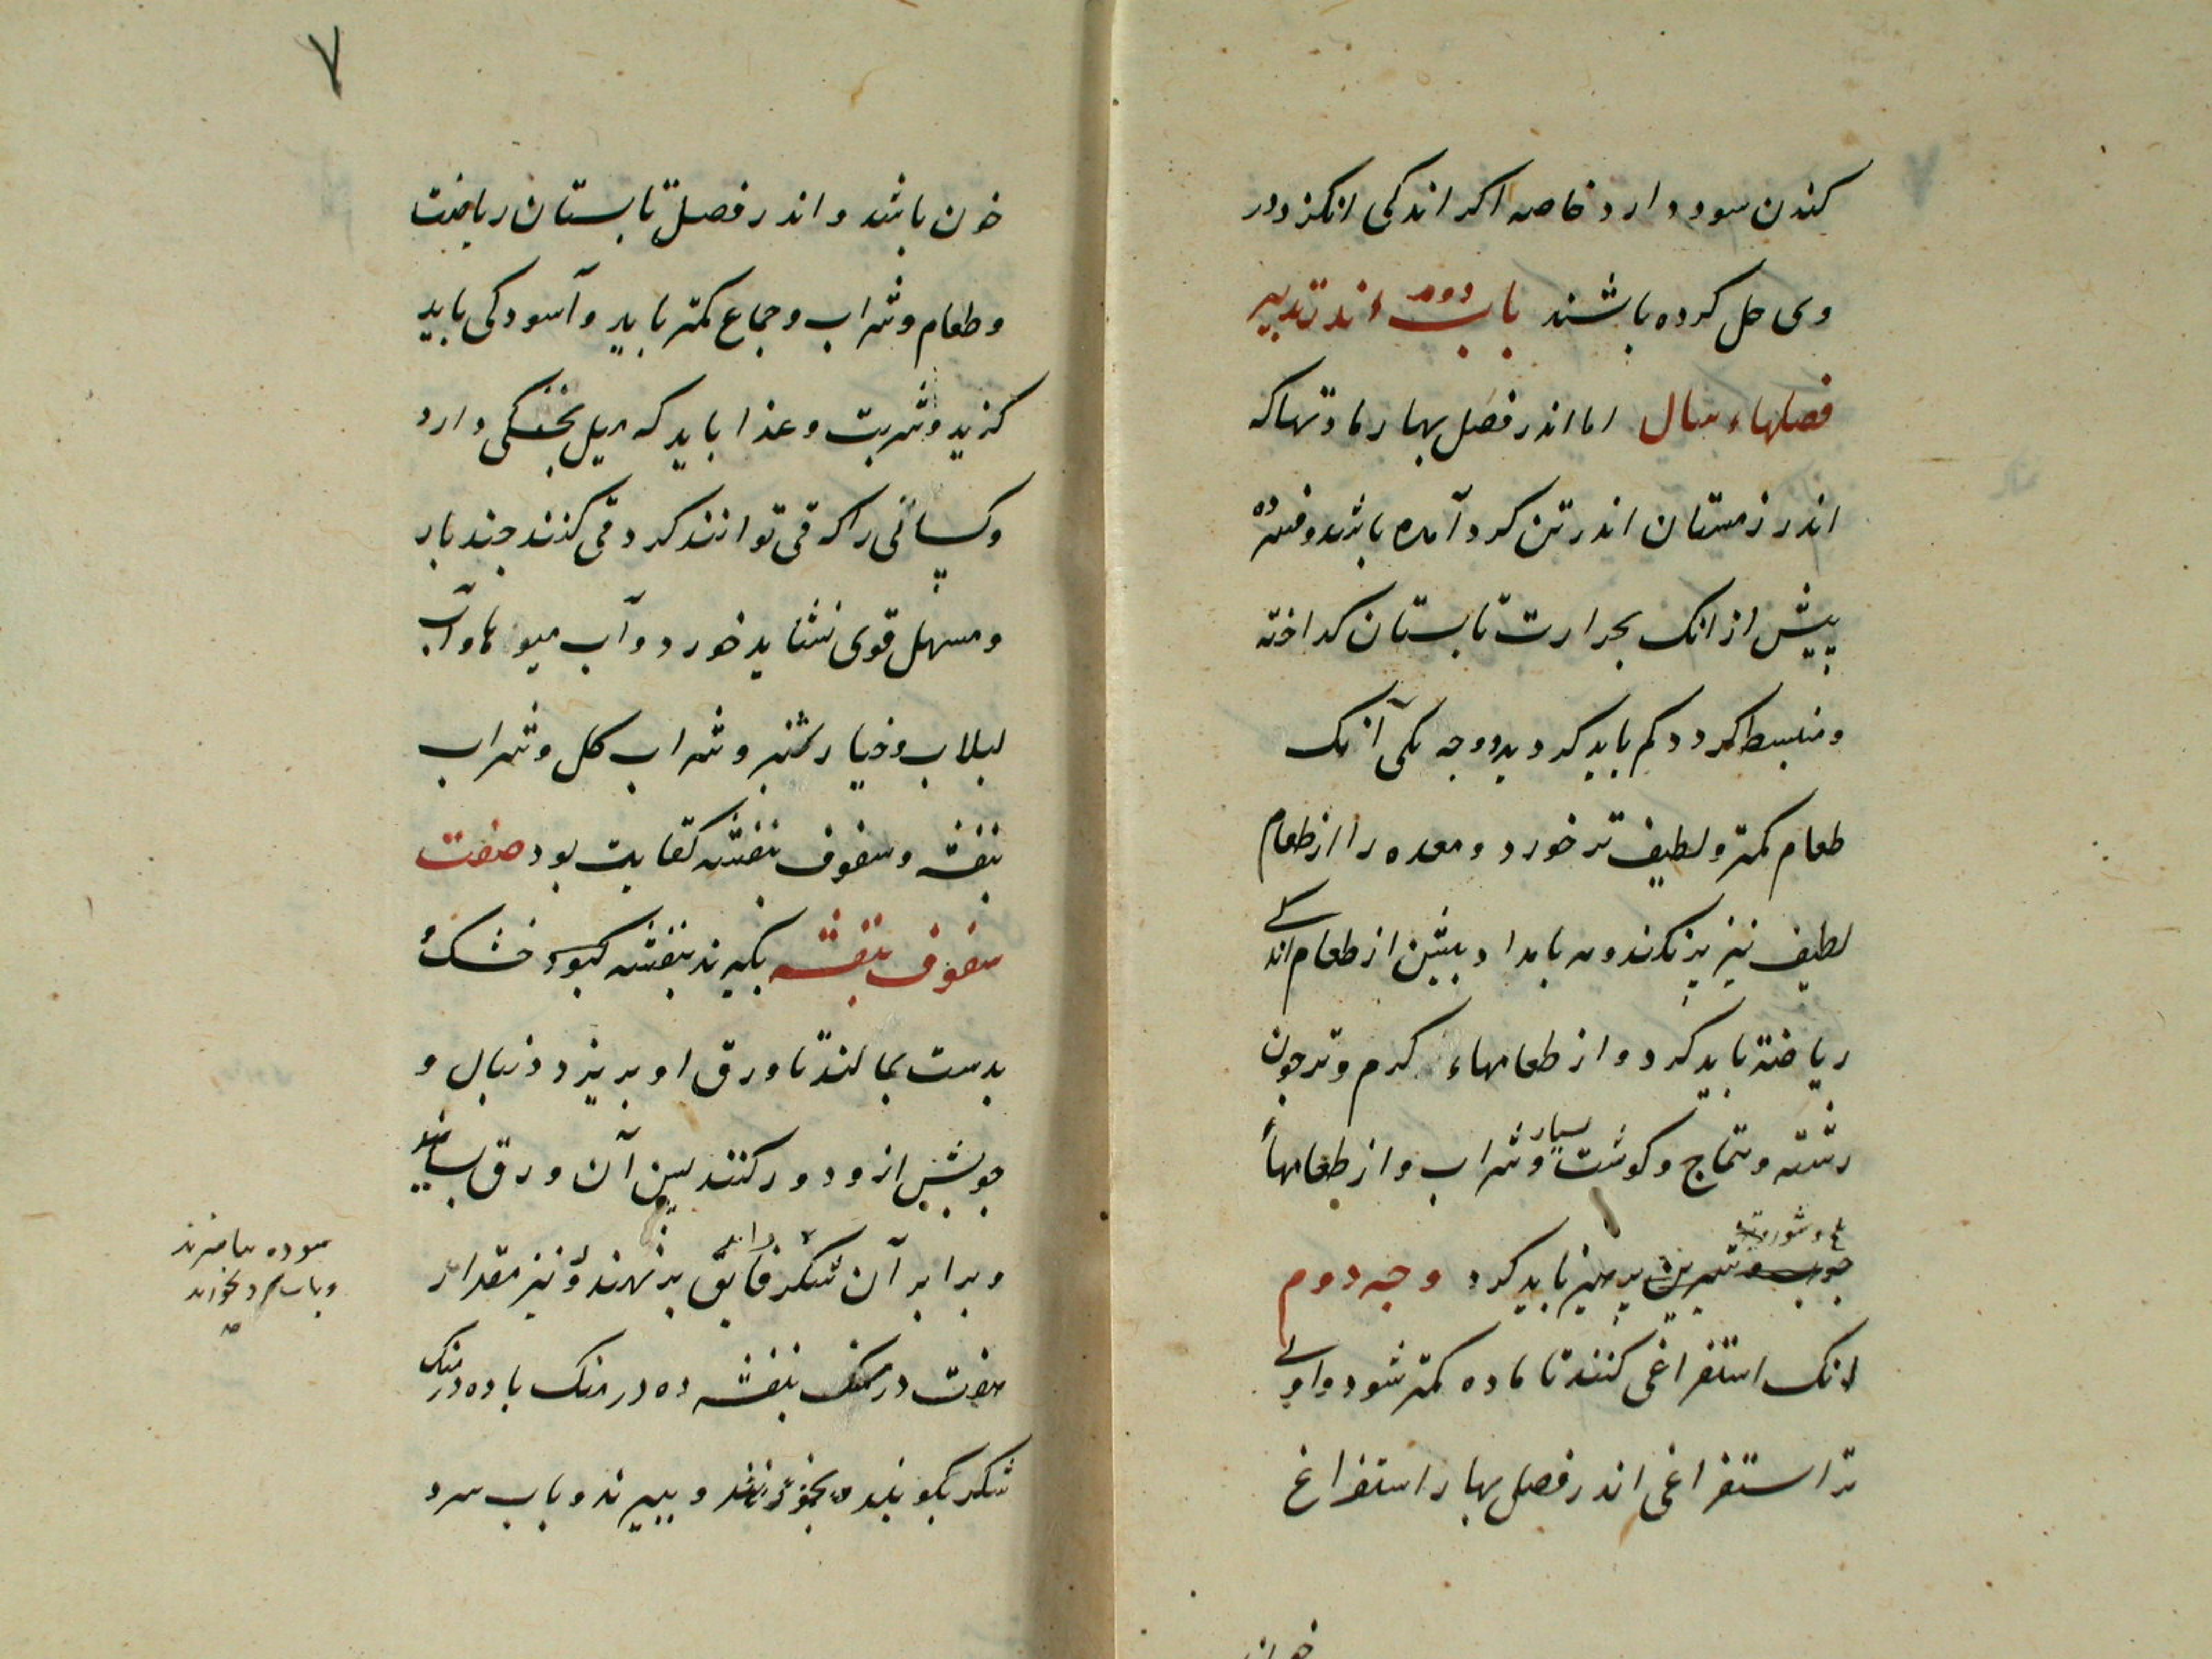 کندن سود دارد خاصه اکر اندکی انکزد در
وی حل کرده باشند باب دوم اندر تدبیر
فصلهاء سال اما اندر فصل بهار مادتها که
اندر زمستان اندر تن کرد آمده باشد و فسرده
پیش از انک بحرارت تابستان کداخته
و منبسط کردد کم باید کرد بدو وجه یکی آنک
طعام کمتر و لطیف تر خورد و معده را از طعام
لطیف نیز پر نکند و بامداد بیش از طعام اندکی
ریاضة باید کرد و از طعامهاء کرم و تر جون
رشته و تتماج و کوشت بسیار و شراب و از طعامهاء
و شور و
جوب و شیرین برهیز باید کرد وجه دوم
انک استفراغی کنند تا ماده کمتر شود و اولی
تر استفراغی اندر فصل بهار استفراغ
خون
۷
خون باشد و اندر فصل تابستان ریاضت
و طعام و شراب و جماع کمتر باید و آسودکی باید
کزید و شربت و غذا باید که میل بخنکی دارد
و کسانی را که قی توانند کرد قی کنند جند بار
و مسهل قوی نشاید خورد و آب میوها و آب
لبلاب و خیارشنبر و شراب کل و شراب
بنفشه و سفوف بنفشه کفایت بود صفت
سفوف بنفشه بکیرند بنفشه کبود خشک
بدست بمالند تا ورق او بریزد و دنبال و
جوبش ازو دور کنند بس آن ورق بسایند
و برابر آن شکر فایق برنهند و نیز مقدار
هفت درمسنک بنفشه ده درمسنک با ده درمسنک
شکر بکوبند و ببیزند و باب سرد
سوده بیامیزند
و باب سرد بخورند